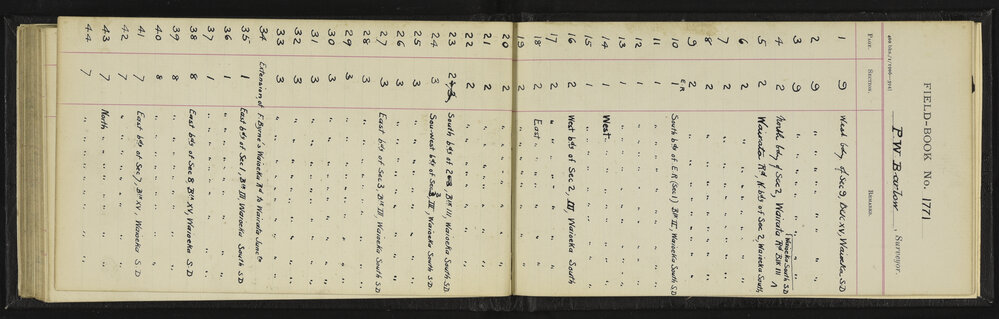 FIELD-BOOK No. 1771
P W Barlow, Surveyor.
Page. Section. Remarks.
1 9 West bdy of Sec 9, Blk XV, Waioeka S.D
2 9 " " " " " "
3 9 " " " " " "
(Waioeka South S.D
4 2 North bdy of Sec 2, Wairata Rd Blk III ^
5 2 Wairata Rd, N bdy of Sec 2, Waioeka South
6 2 " " " " " "
7 2 " " " " " "
8 2 " " " " " "
9 2 " " " " " "
E R
10 1 South bdy of E.R (Sec 1) Blk II, Waioeka South S.D
11 1 " " " " " "
12 1 " " " " " "
13 1 " " " " " "
14 1 West " " " " "
15 1 " " " " " "
16 2 West bdy of Sec 2, III, Waioeka South
17 2 " " " " " "
18 2 East " " " " "
19 2 " " " " " "
20 2 " " " " " "
21 2 " " " " " "
22 2 " " " " " "
23 2&3 South bdy of 2&3, Blk III, Waioeka South S.D
24 3 Sou-West bdy of Sec 3, III, Waioeka South S.D.
25 3 " " " " " "
26 3 " " " " " "
27 3 East bdy of Sec 3, Blk III, Waioeka South S.D
28 3 " " " " " "
29 3 " " " " " "
30 3 " " " " " "
31 3 " " " " " "
32 3 " " " " " "
33 3 " " " " " "
34 Extension of F. Byrne's Waioeka Rd to Wairata Junctn
35 1 East bdy of Sec 1, Blk III, Waioeka South S.D
36 1 " " " " " "
37 1 " " " " " "
38 8 East bdy of Sec 8, Blk XV, Waioeka S D
39 8 " " " " " "
40 8 " " " " " "
41 7 East bdy of Sec 7, Blk XV, Waioeka S.D
42 7 " " " " " "
43 7 North " " " " "
44 7 " " " " " "